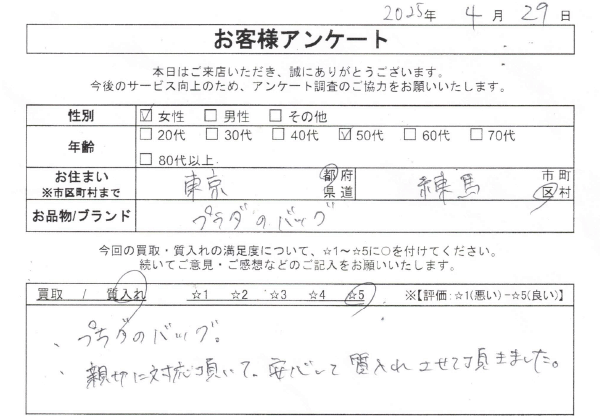 2025年 4月 29日
お客様アンケート
本日はご来店いただき、誠にありがとうございます。
今後のサービス向上のため、アンケート調査のご協力をお願いいたします。
性別 ☑女性 □男性 □その他
年齢 □20代 □30代 □40代 ☑50代 □60代 □70代
□80代以上
お住まい 東京 都府 練馬 市町
※市区町村まで 県道 区村
お品物/ブランド プラダのバッグ
今回の買取・質入れの満足度について、☆1～☆5に○を付けてください。
続いてご意見・ご感想などのご記入をお願いいたします。
買取 / 質入れ ☆1 ☆2 ☆3 ☆4 ☆5 ※【評価:☆1(悪い)−☆5(良い)】
、プラダのバッグ。
、親切に対応頂いて、安心して質入れさせて頂きました。